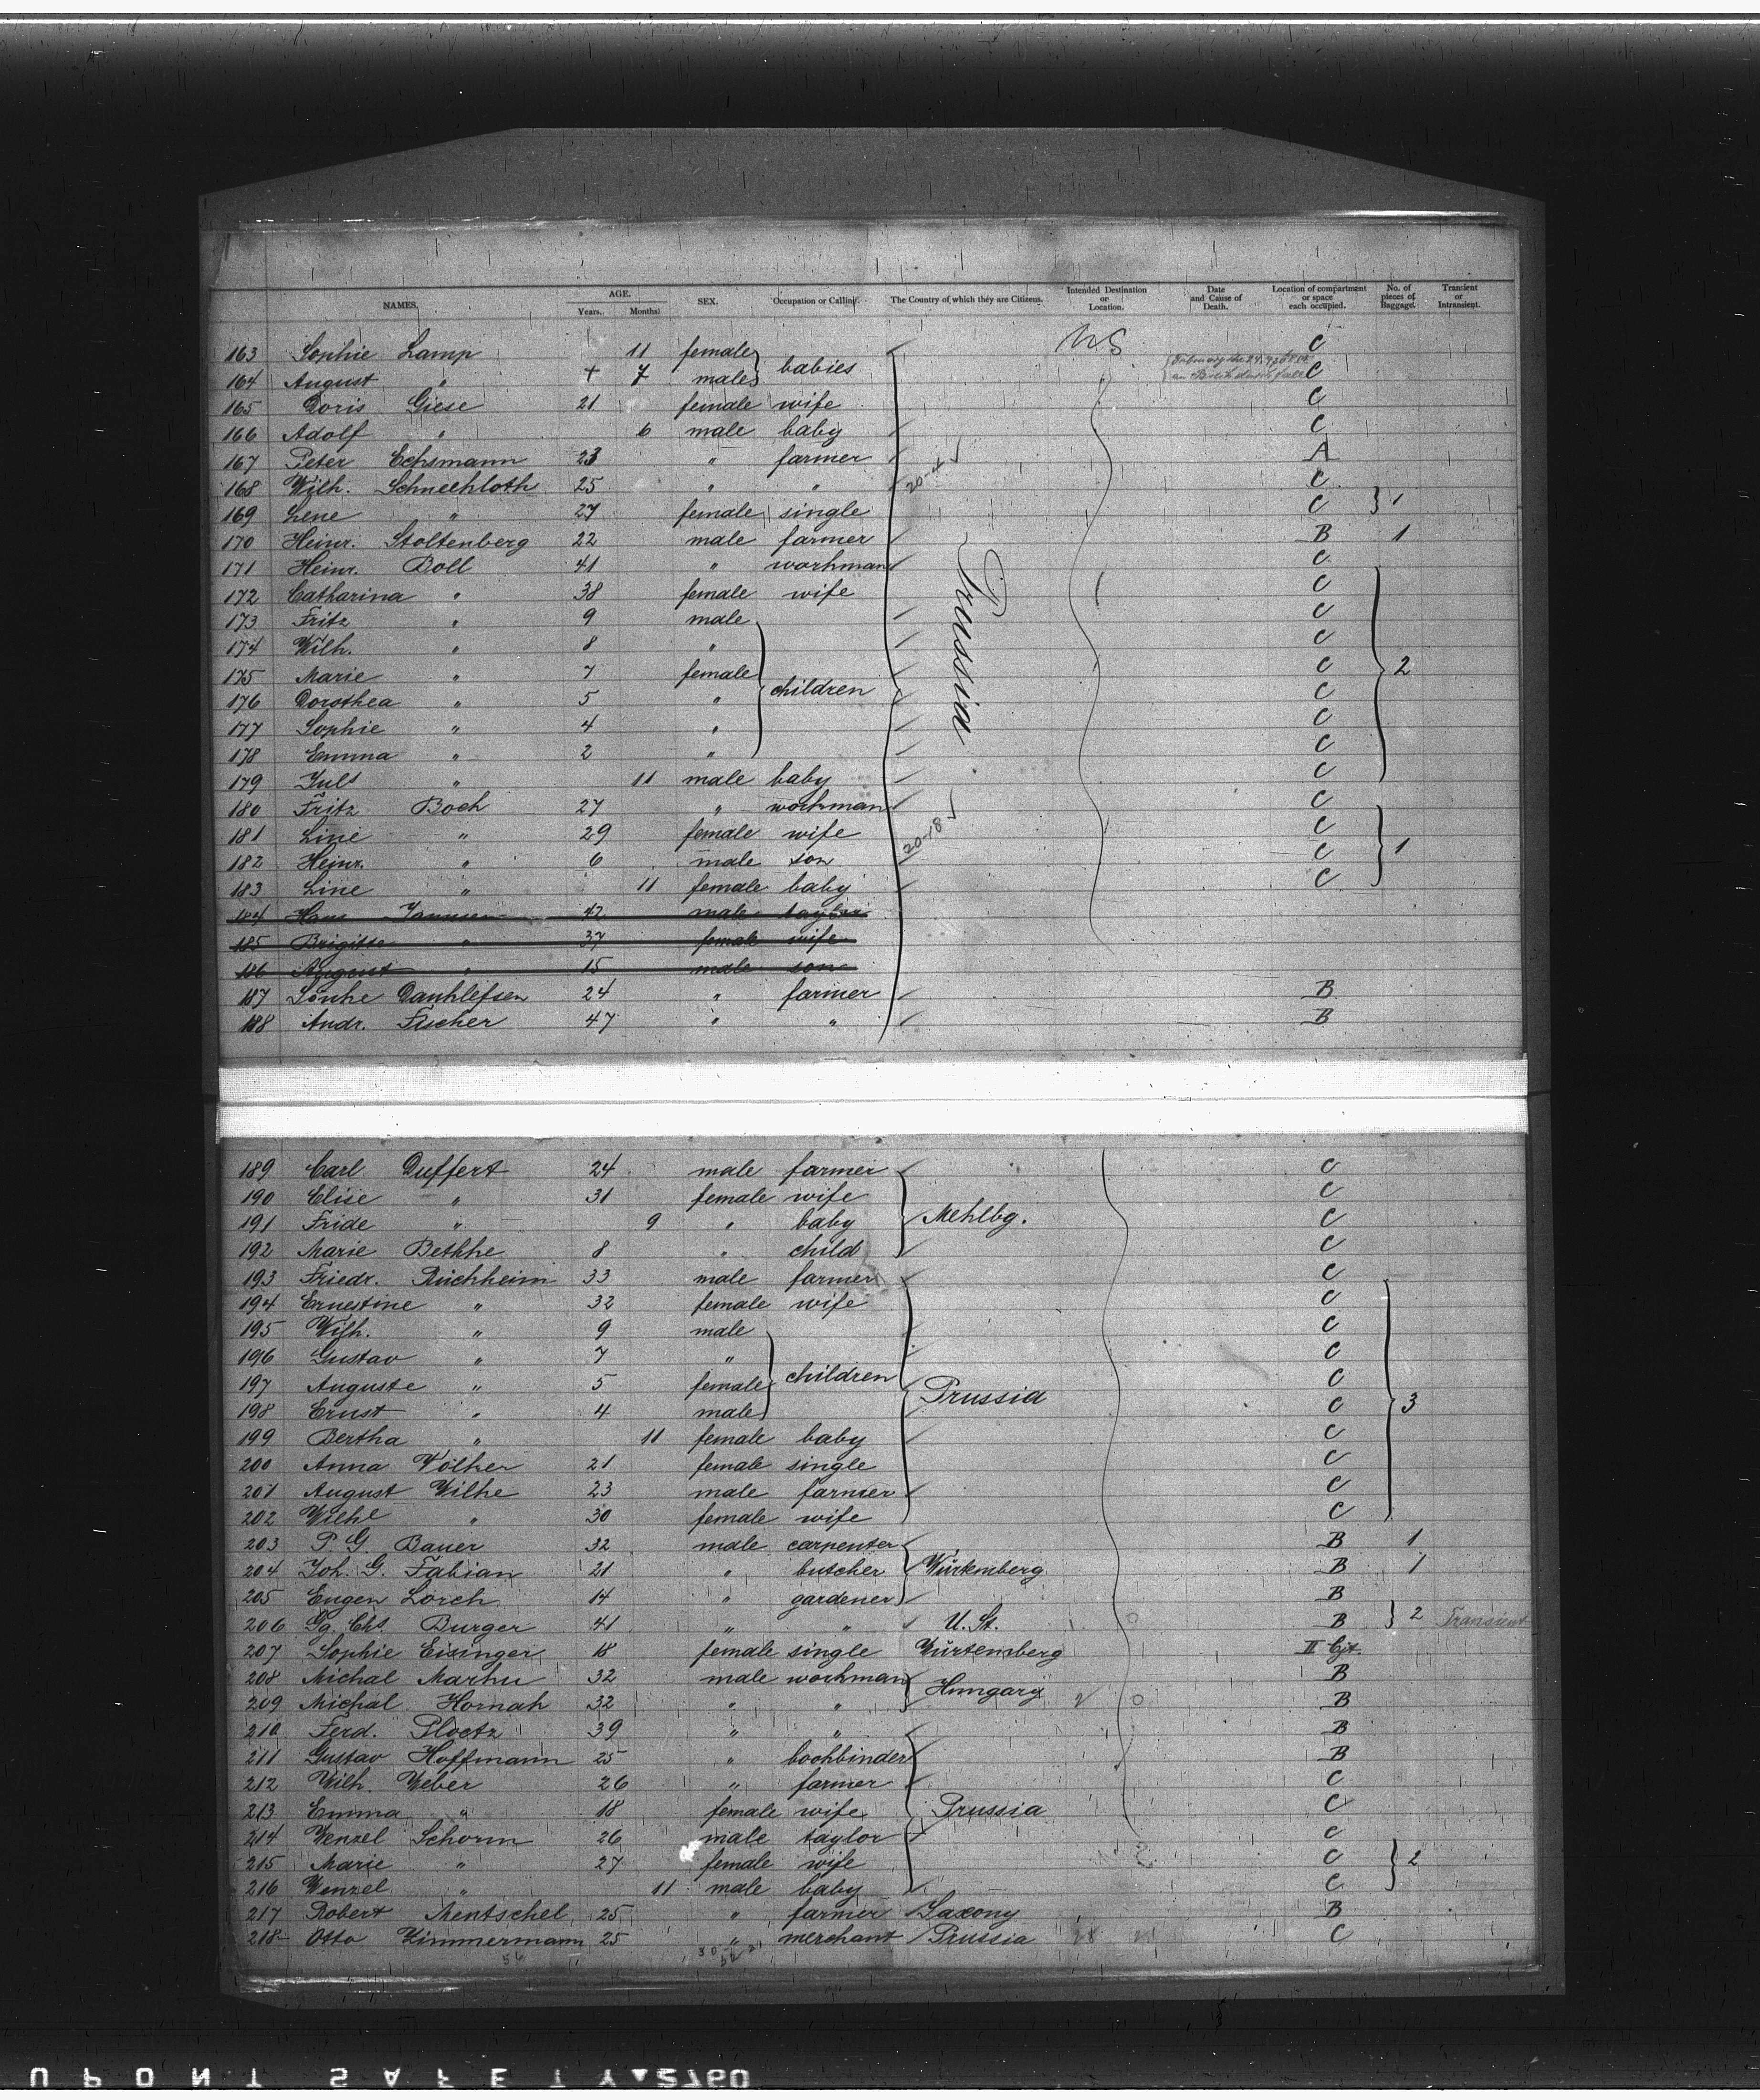 NAMES. AGE. Years. Months SEX. Occupation or Calling. The Country of which they are Citizens. Intended Destination or Location. Date and Cause of Death. Location of compartment or space each occupied. No. of pieces of Baggage. Transient or Intransient.
163 Sophie Lamp 11 female babies C
164 August " + 7 male C
165 Doris Giese 21 female wife C
166 Adolf " 6 male baby C
167 Peter Echsmann 23 " farmer A
168 Wilh. Schneekloth 25 " " 20-4 C
169 Lene " 27 female single C 1
170 Heinr. Stoltenberg 22 male farmer B 1
171 Heinr. Boll 41 " workman C
172 Catharina " 38 female wife C
173 Fritz " 9 male C
174 Wilh. " 8 " C
Prussia
175 Marie " 7 female C 2
176 Dorothea " 5 " children C
177 Sophie " 4 " C
178 Emma " 2 " C
179 Juls " 11 male baby C
180 Fritz Bock 27 " workman C
181 Line " 29 female wife 20-18 C
182 Heinr. " 6 male son C 1
183 Line " 11 female baby C
184 Hans Jannsen 42 male taylor
185 Brigitte " 37 female wife
186 August " 15 male son
187 Sönke Danklefsen 24 " farmer B
188 Andr. Fischer 47 " " B
189 Carl Duffert 24 male farmer C
190 Elise " 31 female wife C
191 Fride " 9 " baby Meklbg. C
192 Marie Bethke 8 " child C
193 Friedr. Rückheim 33 male farmer C
194 Ernestine " 32 female wife C
195 Wilh. " 9 male C
196 Gustav " 7 " C
197 Auguste " 5 female children Prussia C
198 Ernst " 4 male C 3
199 Bertha " 11 female baby C
200 Anna Völker 21 female single C
201 August Wilke 23 male farmer C
202 Wilhl " 30 female wife C
203 P. G. Bauer 32 male carpenter B 1
204 Joh. G. Fabian 21 " butcher Würtemberg B 1
205 Eugen Lorch 14 " gardener B
206 Gg. Chs. Burger 41 " " U. St. B 2 Transient
207 Sophie Eisinger 18 female single Würtemberg II Cjt.
208 Michal Marku 32 male workman B
209 Michal Hornak 32 " " Hungary B
210 Ferd. Ploetz 39 " " B
211 Gustav Hoffmann 25 " bookbinder B
212 Wilh. Weber 26 " farmer C
213 Emma " 18 female wife Prussia C
214 Wenzel Schorm 26 male taylor C
215 Marie " 27 female wife C 2
216 Wenzel " 11 male baby C
217 Robert Mentschel 25 " farmer Saxony B
218 Otto Zimmermann 25 " merchant Prussia C
56
UPONT SAFETY 2760